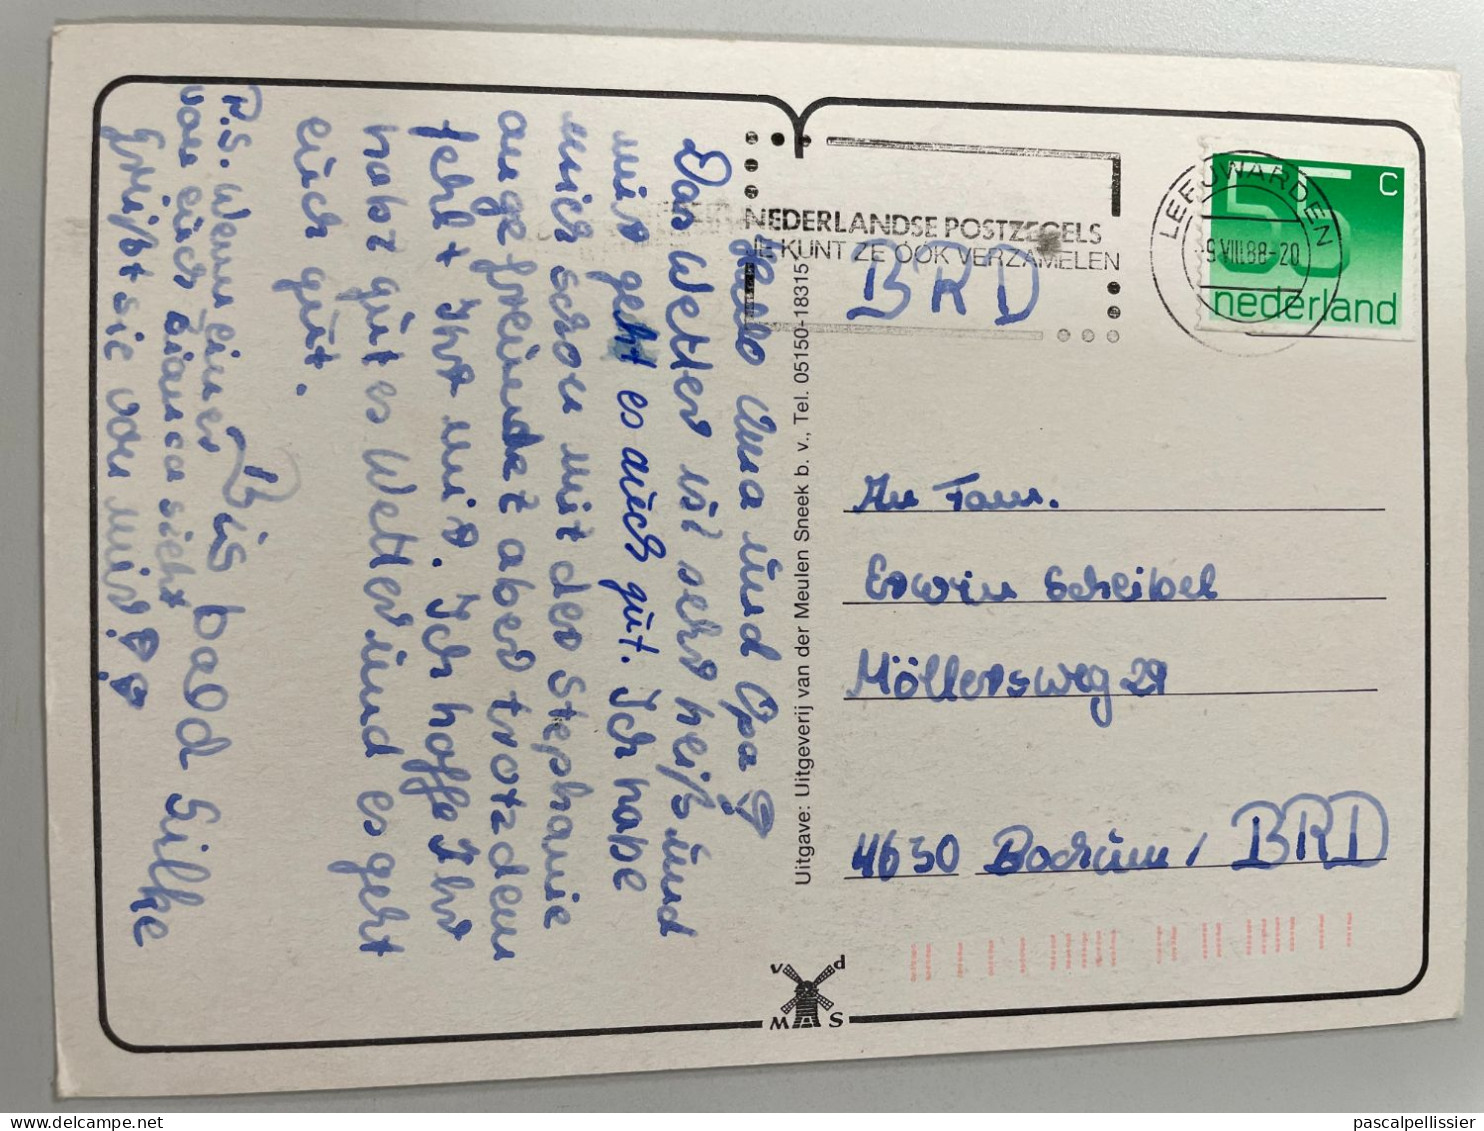 Hallo Oma und Opa
Das Wetter ist sehr heiß und
mir geht es auch gut. Ich habe
mich schon mit der Stephanie
angefreundet aber trotzdem
fehlt Ihr mir. Ich hoffe Ihr
habt gutes Wetter und es geht
euch gut.
Bis bald Silke
P.S. Wenn einer
von euch Bianca sieht
Grüßt sie von mir!
Uitgave: Uitgeverij van der Meulen Sneek b. v., Tel. 05150-18315
NEDERLANDSE POSTZEGELS
JE KUNT ZE ÓÓK VERZAMELEN
BRD
LEEUWARDEN
-9.VIII.88-20
55 c
nederland
An Fam.
Erwin Scheibel
Möllersweg 29
4630 Bochum / BRD
v d
M S
pascalpellissier